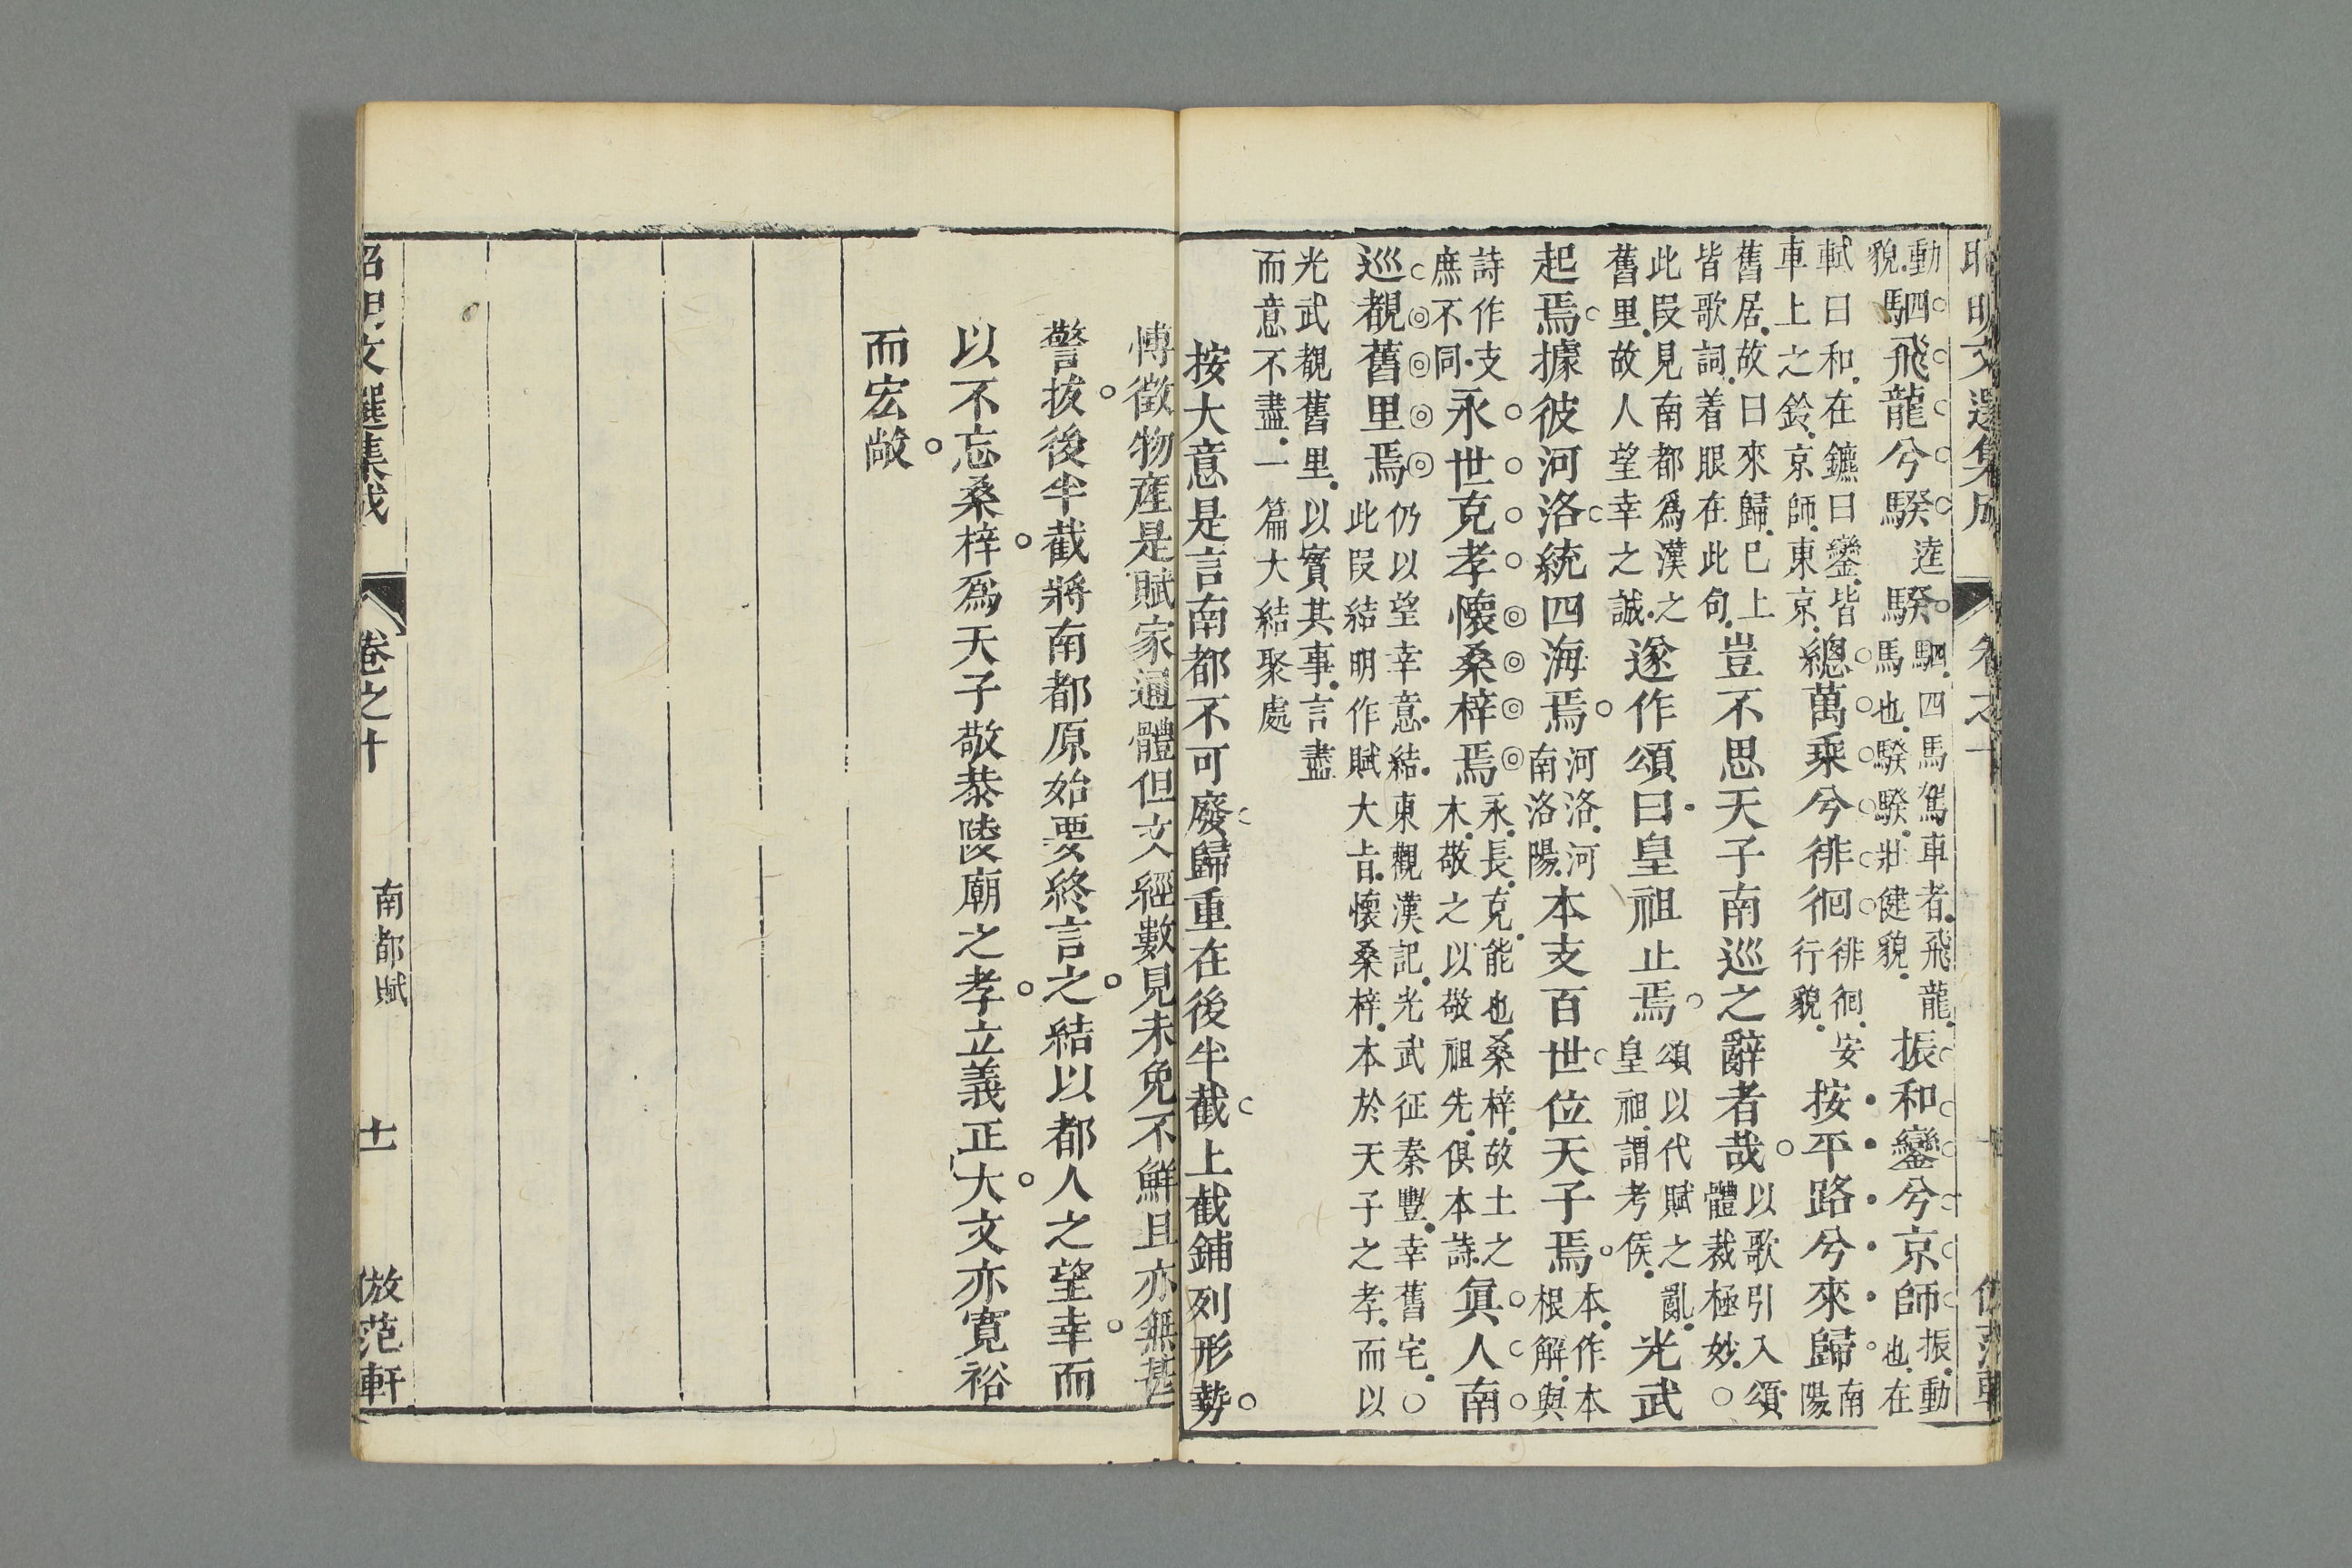 昭明文選集成　卷之十　倣范軒
動貌駟飛龍兮騤逵騤駟四馬駕車者飛龍馬也騤騤壯健貌振和鑾兮京師振動也在
軾曰和在鑣曰鑾皆車上之鈴京師東京總萬乘兮徘徊徘徊安行貌按平路兮來歸南陽
舊居故曰來歸已上皆歌詞着眼在此句豈不思天子南巡之辭者哉以歌引入頌體裁極妙○
此叚見南都爲漢之舊里故人望幸之誠遂作頌曰皇祖止焉頌以代賦之亂皇祖謂考侯光武
起焉據彼河洛統四海焉河洛河南洛陽本支百世位天子焉本作本根解與
詩作支庶不同永世克孝懷桑梓焉永長克能也桑梓故土之木敬之以敬祖先俱本詩眞人南
巡覩舊里焉仍以望幸意結此叚結明作賦東觀漢記光武征秦豐幸舊宅○大旨懷桑梓本於天子之孝而以
光武覩舊里以實其事言盡而意不盡一篇大結聚處
按大意是言南都不可廢歸重在後半截上截鋪列形勢
博徵物產是賦家通體但文經數見未免不鮮且亦無甚
警拔後半截將南都原始要終言之結以都人之望幸而
以不忘桑梓爲天子敬恭陵廟之孝立義正大文亦寬裕
而宏敞
昭明文選集成　卷之十　南都賦　十一　倣范軒